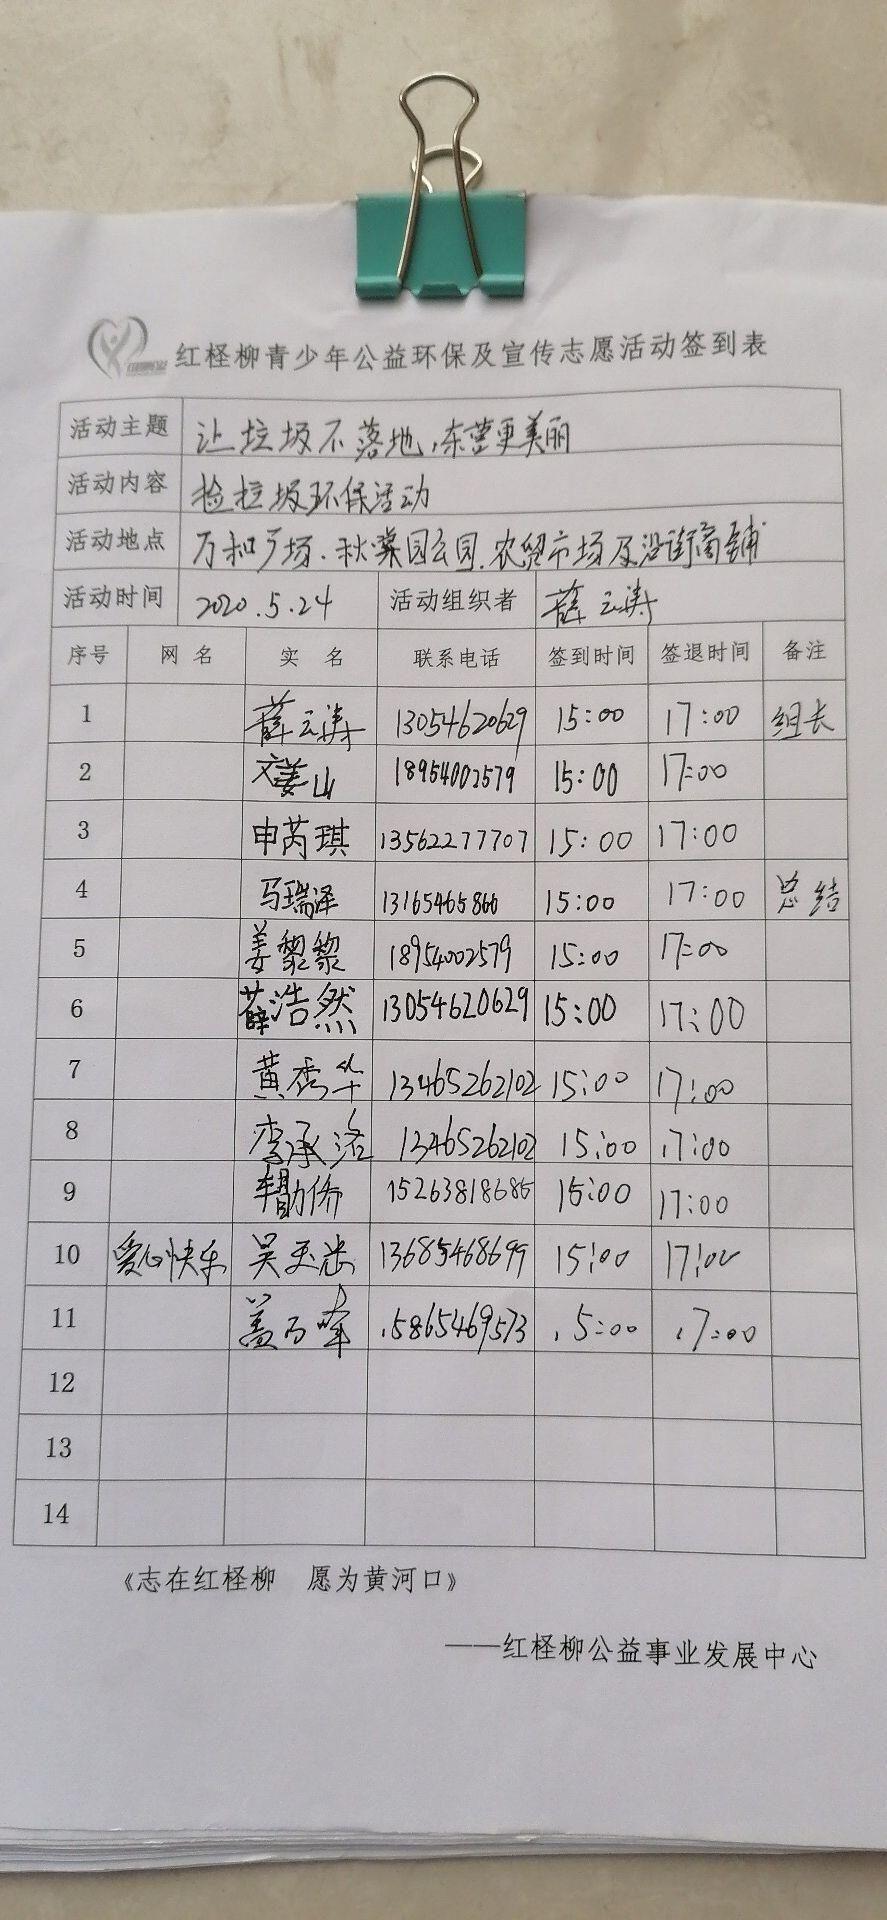 红柽柳青少年公益环保及宣传志愿活动签到表
活动主题 让垃圾不落地,东营更美丽
活动内容 捡垃圾环保活动
活动地点 万和广场.秋葉园公园.农贸市场及沿街商铺
活动时间 2020.5.24 活动组织者 薛云涛
序号 网名 实名 联系电话 签到时间 签退时间 备注
1 薛云涛 13054620629 15:00 17:00 组长
2 文姜山 18954002579 15:00 17:00
3 申芮琪 13562277707 15:00 17:00
4 马瑞泽 13165465866 15:00 17:00 总结
5 姜黎黎 18954002579 15:00 17:00
6 薛浩然 13054620629 15:00 17:00
7 黄秀华 13465262102 15:00 17:00
8 李承洛 13465262102 15:00 17:00
9 15263818685 15:00 17:00
10 爱心快乐 吴玉 13685468699 15:00 17:00
11 盖万峰 15865469573 15:00 17:00
12
13
14
《志在红柽柳 愿为黄河口》
——红柽柳公益事业发展中心